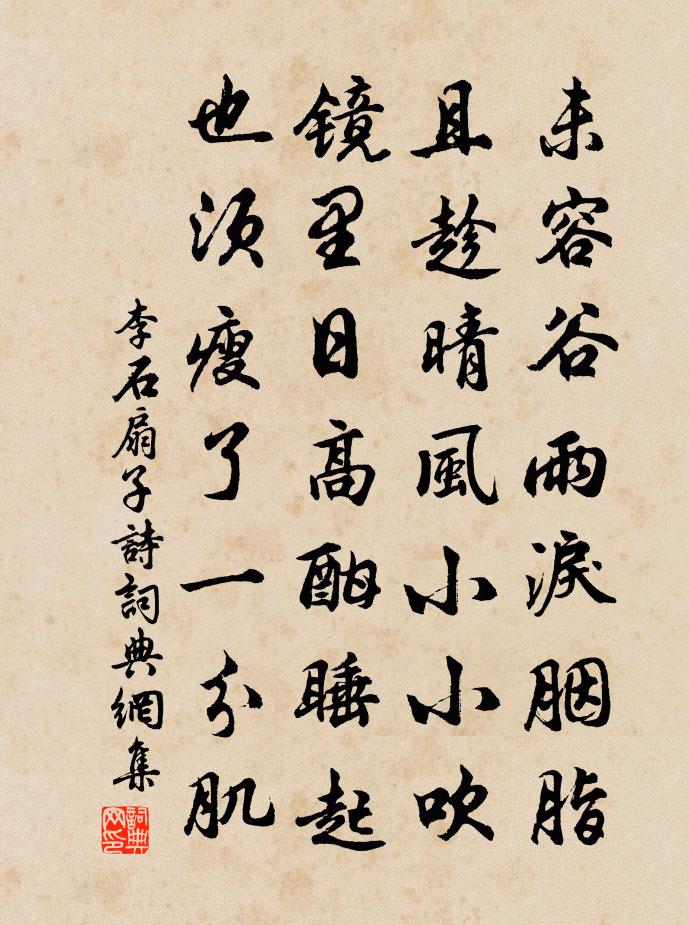 未容谷雨淚胭脂
且趁晴風小小吹
镜里日高酣睡起
也须瘦了一分肌
李石扇子詩詞典網集
詞典网印